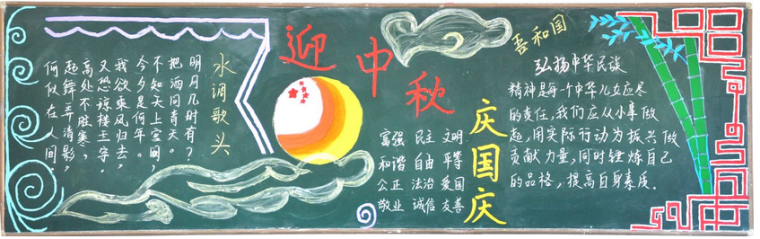 水调歌头
明月几时有?
把酒问青天。
不知天上宫阙,
今夕是何年。
我欲乘风归去,
又恐琼楼玉宇,
高处不胜寒,
起舞弄清影,
何似在人间。
迎中秋
富强 民主 文明
和谐 自由 平等
公正 法治 爱国
敬业 诚信 友善
庆国庆
吾和国
弘扬中华民族
精神是每个中华儿女应尽
的责任,我们应从小事做
起,用实际行动为振兴做
贡献力量,同时锻炼自己
的品格,提高自身素质.